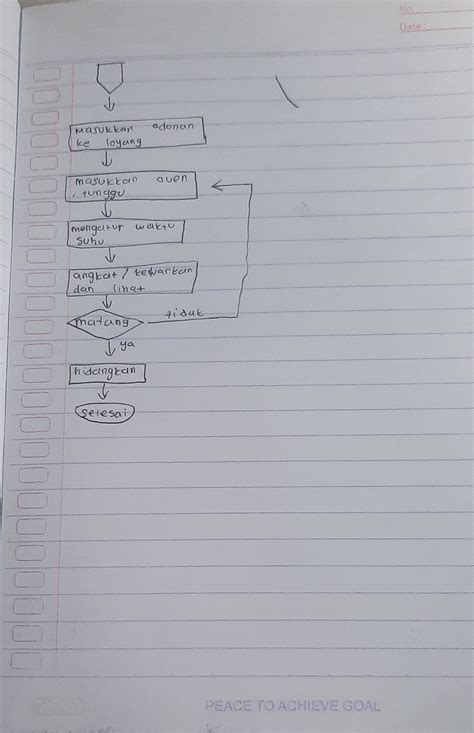 No.
Date:
masukkan adonan
ke loyang
masukkan oven
, tunggu
mengatur waktu
suhu
angkat / keluarkan
dan lihat
matang
tidak
ya
hidangkan
selesai
PEACE TO ACHIEVE GOAL